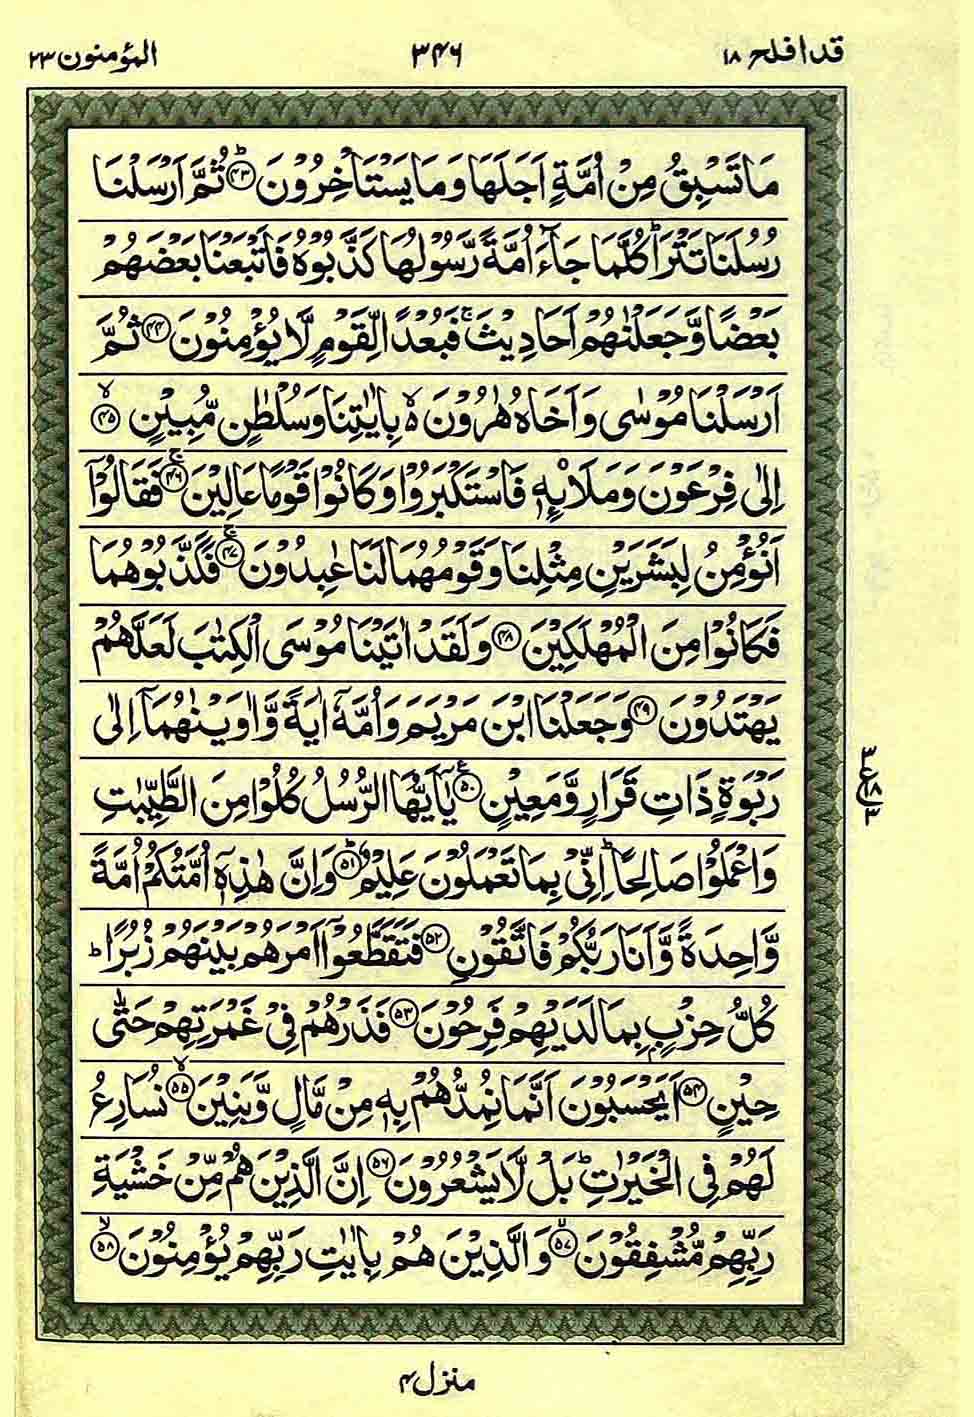 قد افلح ۱۸
۳۴۶
المؤمنون ۲۳
مَا تَسْبِقُ مِنْ اُمَّةٍ اَجَلَهَا وَمَا يَسْتَاْخِرُوْنَ ؕ۝۴۳ ثُمَّ اَرْسَلْنَا
رُسُلَنَا تَتْرَا ؕ كُلَّمَا جَآءَ اُمَّةً رَّسُوْلُهَا كَذَّبُوْهُ فَاَتْبَعْنَا بَعْضَهُمْ
بَعْضًا وَّجَعَلْنٰهُمْ اَحَادِيْثَ ۚ فَبُعْدًا لِّقَوْمٍ لَّا يُؤْمِنُوْنَ ۝۴۴ ثُمَّ
اَرْسَلْنَا مُوْسٰى وَاَخَاهُ هٰرُوْنَ ۙ۬ بِاٰيٰتِنَا وَسُلْطٰنٍ مُّبِيْنٍ ۙ۝۴۵
اِلٰى فِرْعَوْنَ وَمَلَا۟ىِٕهٖ فَاسْتَكْبَرُوْا وَكَانُوْا قَوْمًا عَالِيْنَ ۚ۝۴۶ فَقَالُوْۤا
اَنُؤْمِنُ لِبَشَرَيْنِ مِثْلِنَا وَقَوْمُهُمَا لَنَا عٰبِدُوْنَ ۚ۝۴۷ فَكَذَّبُوْهُمَا
فَكَانُوْا مِنَ الْمُهْلَكِيْنَ ۝۴۸ وَلَقَدْ اٰتَيْنَا مُوْسَى الْكِتٰبَ لَعَلَّهُمْ
يَهْتَدُوْنَ ۝۴۹ وَجَعَلْنَا ابْنَ مَرْيَمَ وَاُمَّهٗۤ اٰيَةً وَّاٰوَيْنٰهُمَاۤ اِلٰى
رَبْوَةٍ ذَاتِ قَرَارٍ وَّمَعِيْنٍ ۠۝۵۰ يٰۤاَيُّهَا الرُّسُلُ كُلُوْا مِنَ الطَّيِّبٰتِ
وَاعْمَلُوْا صَالِحًا ؕ اِنِّيْ بِمَا تَعْمَلُوْنَ عَلِيْمٌ ؕ۝۵۱ وَاِنَّ هٰذِهٖۤ اُمَّتُكُمْ اُمَّةً
وَّاحِدَةً وَّاَنَا رَبُّكُمْ فَاتَّقُوْنِ ۝۵۲ فَتَقَطَّعُوْۤا اَمْرَهُمْ بَيْنَهُمْ زُبُرًا ؕ
كُلُّ حِزْبٍۭ بِمَا لَدَيْهِمْ فَرِحُوْنَ ۝۵۳ فَذَرْهُمْ فِيْ غَمْرَتِهِمْ حَتّٰى
حِيْنٍ ۝۵۴ اَيَحْسَبُوْنَ اَنَّمَا نُمِدُّهُمْ بِهٖ مِنْ مَّالٍ وَّبَنِيْنَ ۙ۝۵۵ نُسَارِعُ
لَهُمْ فِي الْخَيْرٰتِ ؕ بَلْ لَّا يَشْعُرُوْنَ ۝۵۶ اِنَّ الَّذِيْنَ هُمْ مِّنْ خَشْيَةِ
رَبِّهِمْ مُّشْفِقُوْنَ ۙ۝۵۷ وَالَّذِيْنَ هُمْ بِاٰيٰتِ رَبِّهِمْ يُؤْمِنُوْنَ ۙ۝۵۸
۳
ع ۱۸
۳
منزل ۴